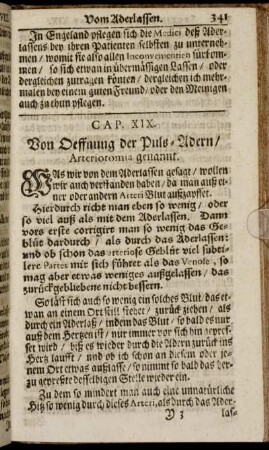 Vom Aderlassen. 341
In Engeland pflegen sich die Medici deß Ader-
lassens bey ihren Patienten selbsten zu unterneh-
men / womit sie also allen Inconvenientien fürkom-
men / so sich etwan in übermäßigen Lassen / oder
dergleichen zutragen können / dergleichen ich mehr-
malen bey einem guten Freund / oder den Meinigen
auch zu thun pflegen.
CAP. XIX.
Von Oeffnung der Puls-Adern /
Arteriotomia genannt.
Als wir von dem Aderlassen gesagt / wollen
wir auch verstanden haben / da man auß ei-
ner oder andern Arteri Blut außzapffet.
Hierdurch richt man eben so wenig / oder
so viel auß als mit dem Aderlassen. Dann
vors erste corrigirt man so wenig das Ge-
blüt dardurch / als durch das Aderlassen:
und ob schon das arteriose Geblüt viel subti-
lere Partes mit sich führet als das Venose, so
mag aber etwas weniges außgelassen / das
zurückgebliebene nicht bessern.
So läst sich auch so wenig ein solches Blut, das et-
wan an einem Ort still stehet / zurück ziehen / als
durch ein Aderlaß, indem das Blut / so bald es nur
auß dem Hertzen ist / nur immer vor sich hin gepres-
set wird / biß es wieder durch die Adern zurück ins
Hertz laufft / und ob ich schon an diesem oder je-
nem Ort etwas außlasse / so nimmt so bald das her-
zu gepreßte desselbigen Stelle wieder ein.
Zu dem so mindert man auch eine unnatürliche
Hitz so wenig durch dieses Arteri, als durch das Ader-
Y 3 las-